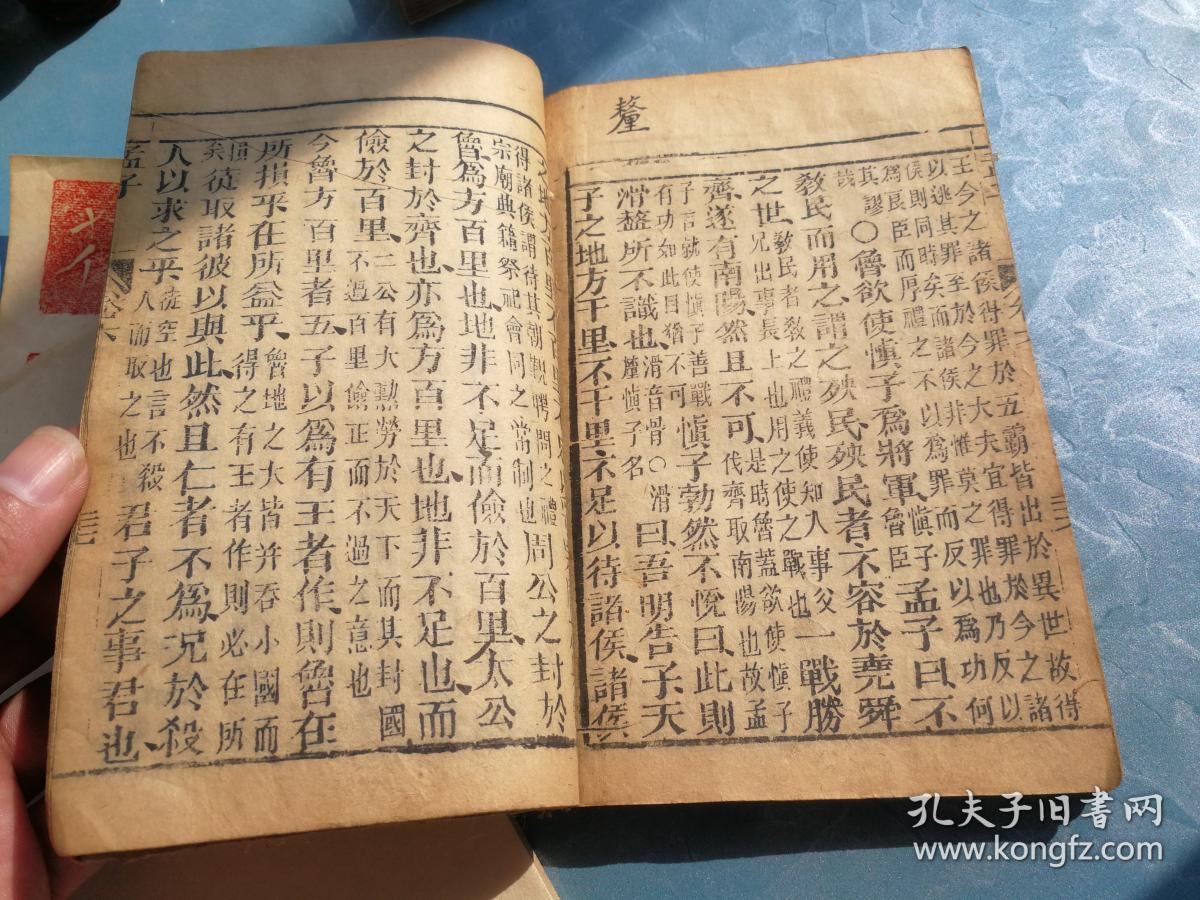 釐
王今之諸侯得罪於五霸皆出於異世故得
以逃其罪至於今之大夫宜得罪於今之諸
侯則同時矣而諸侯非惟莫之罪也乃反以
爲良臣而厚禮之不以爲罪而反以爲功何
其謬哉○魯欲使慎子爲將軍慎子魯臣孟子曰不
教民而用之謂之殃民殃民者不容於堯舜
之世教民者教之禮義使知入事父兄出事長上也用之使之戰也一戰勝
齊遂有南陽然且不可是時魯蓋欲使慎子伐齊取南陽也故孟
子言就使慎子善戰有功如此且猶不可慎子勃然不悅曰此則
滑釐所不識也滑音骨○滑釐慎子名曰吾明告子天
子之地方千里不千里不足以待諸侯諸侯
得諸侯謂待其朝覲聘問之禮宗廟典籍祭祀會同之常制也周公之封於
魯爲方百里也地非不足而儉於百里太公
之封於齊也亦爲方百里也地非不足也而
儉於百里二公有大勲勞於天下而其封國不過百里儉止而不過之意也
今魯方百里者五子以爲有王者作則魯在
所損乎在所益乎魯地之大皆并吞小國而得之有王者作則必在所
損矣徒取諸彼以與此然且仁者不爲況於殺
人以求之乎徒空也言不殺人而取之也君子之事君也
孟子
孔夫子旧书网
www.kongfz.com